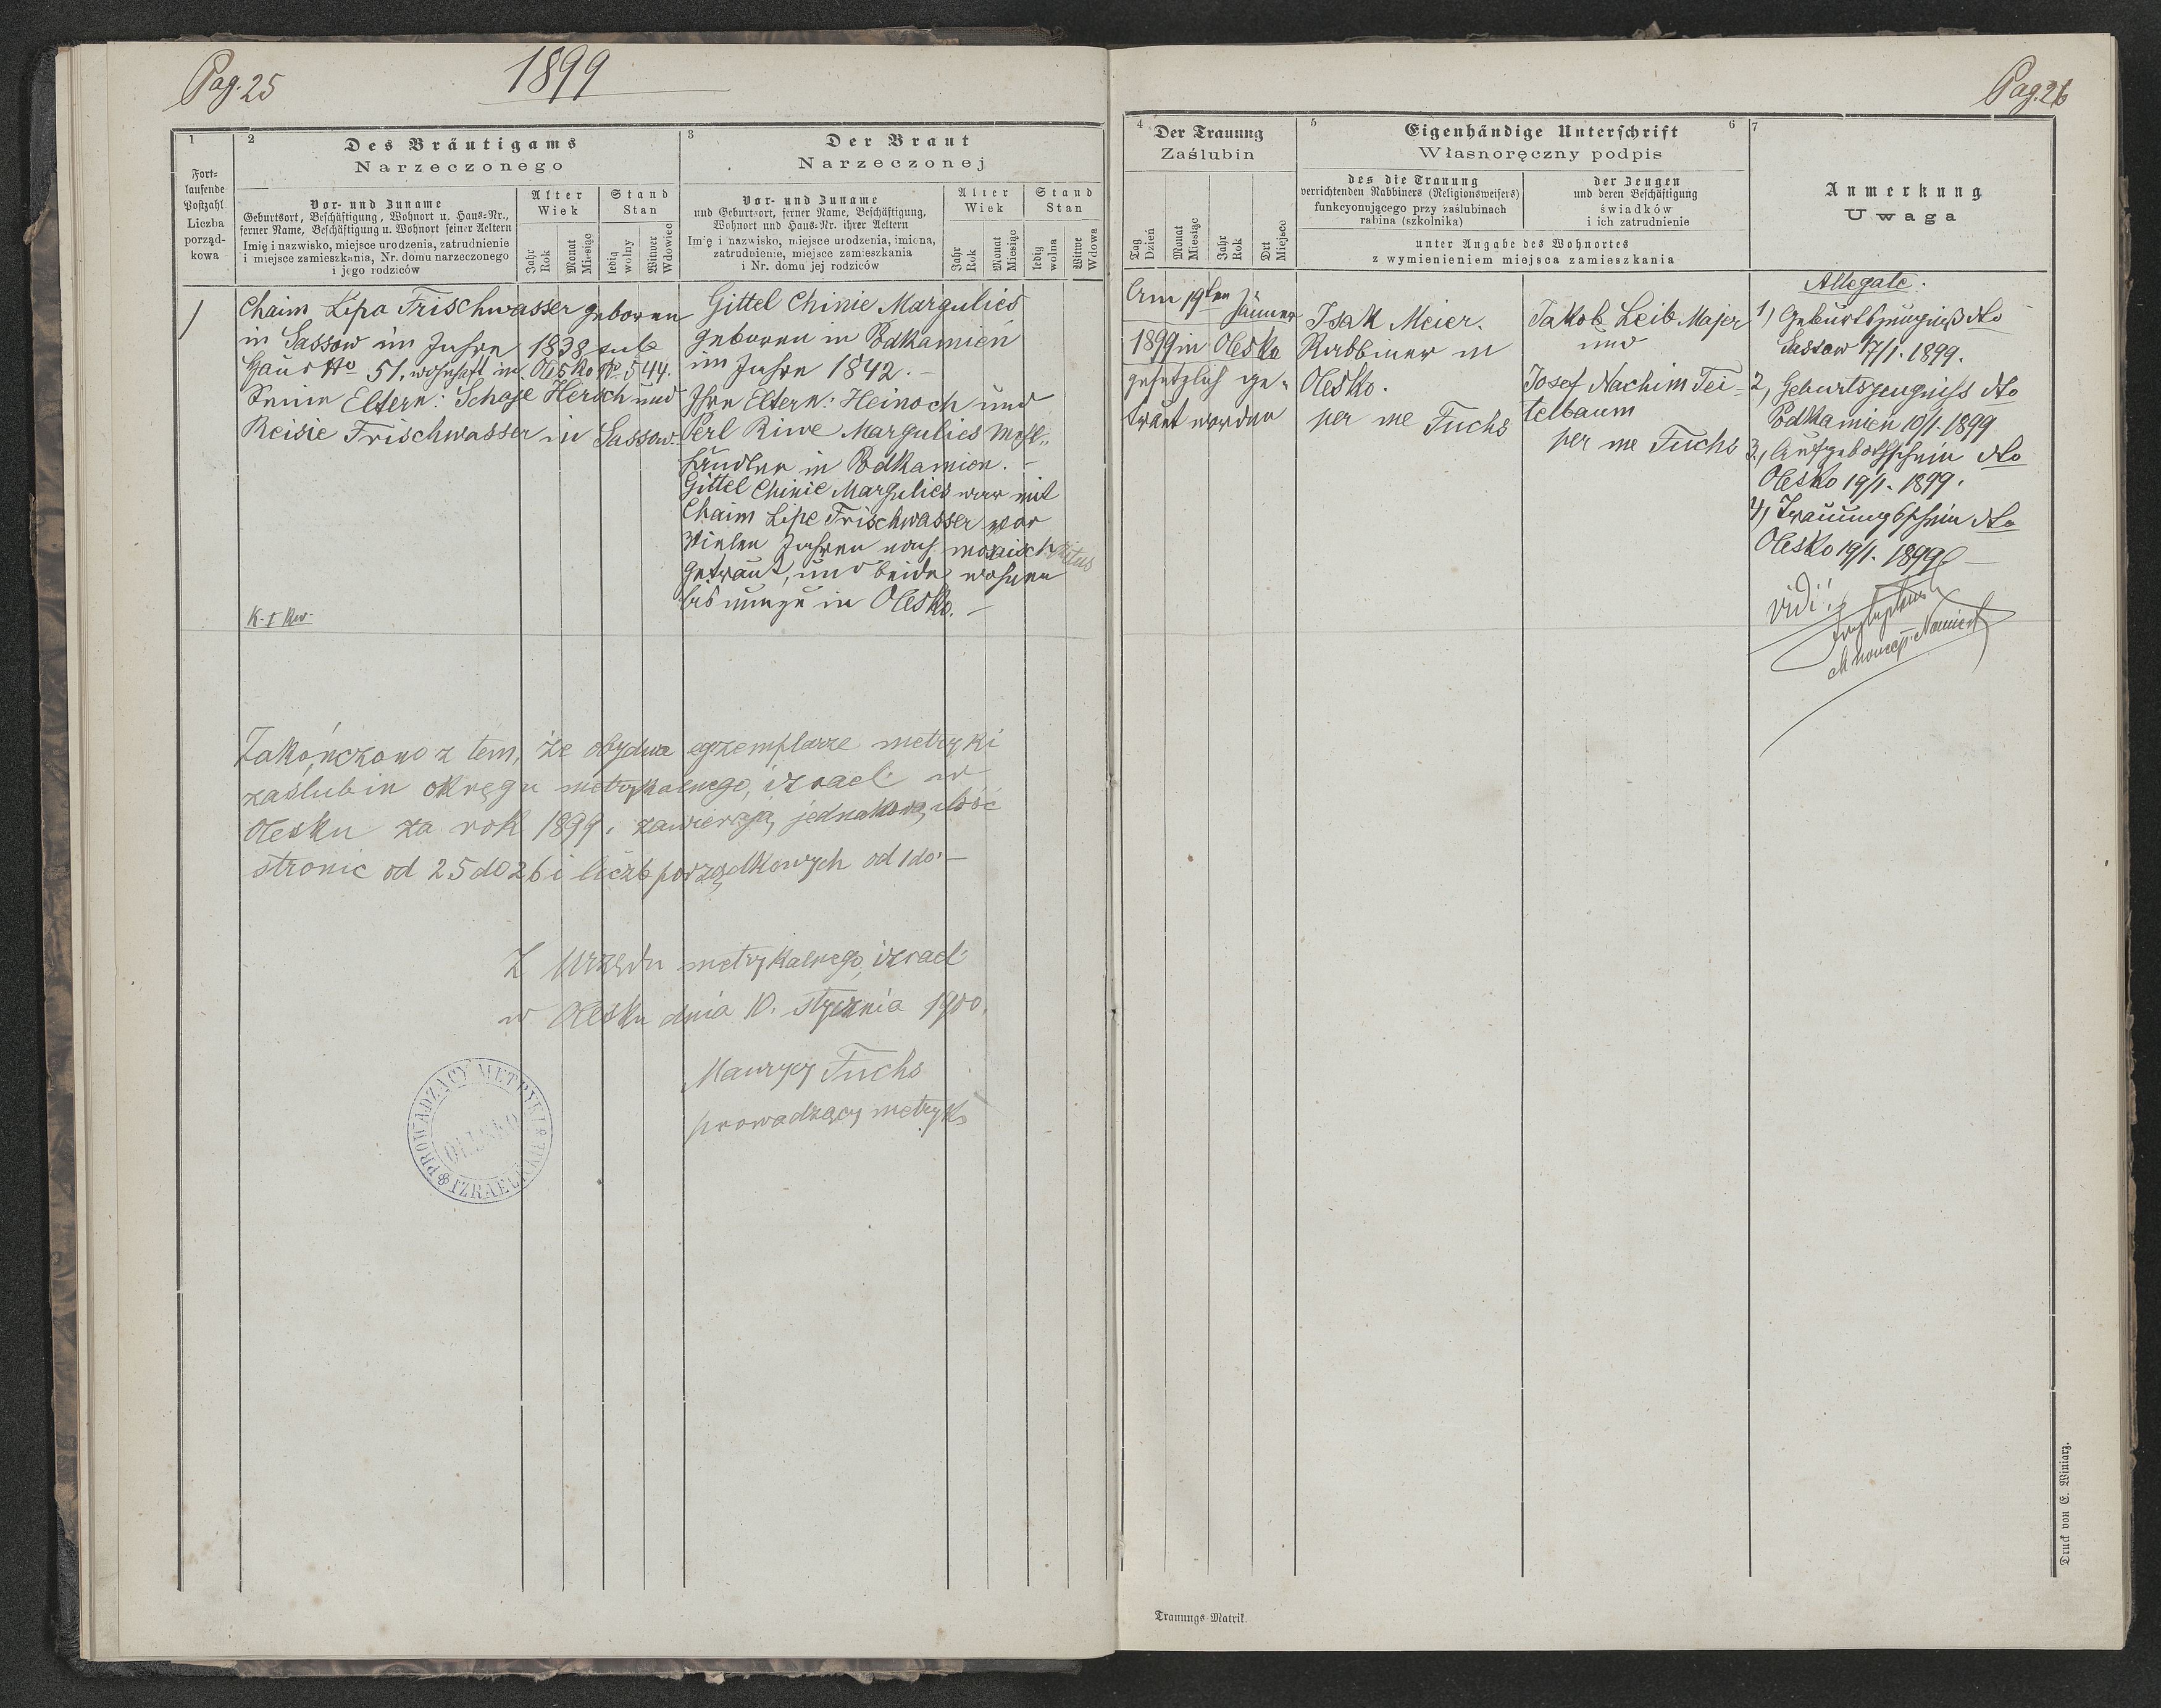 Pag. 25
1899
Pag. 26
1
Fort-
laufende
Postzahl
Liczba
porząd-
kowa
2
Des Bräutigams
Narzeczonego
Vor- und Zuname
Geburtsort, Beschäftigung, Wohnort u. Haus-Nr.,
ferner Name, Beschäftigung u. Wohnort seiner Aeltern
Imię i nazwisko, miejsce urodzenia, zatrudnienie
i miejsce zamieszkania, Nr. domu narzeczonego
i jego rodziców
Alter
Wiek
Jahr
Rok
Monat
Miesiąc
Stand
Stan
ledig
wolny
Witwer
Wdowiec
3
Der Braut
Narzeczonej
Vor- und Zuname
und Geburtsort, ferner Name, Beschäftigung,
Wohnort und Haus-Nr. ihrer Aeltern
Imię i nazwisko, miejsce urodzenia, imiona,
zatrudnienie, miejsce zamieszkania
i Nr. domu jej rodziców
Alter
Wiek
Jahr
Rok
Monat
Miesiąc
Stand
Stan
ledig
wolna
Witwe
Wdowa
4
Der Trauung
Zaślubin
Tag
Dzień
Monat
Miesiąc
Jahr
Rok
Ort
Miejsce
5
Eigenhändige Unterschrift
6
Własnoręczny podpis
des die Trauung
verrichtenden Rabbiners (Religionsweisers)
funkcyonującego przy zaślubinach
rabina (szkolnika)
der Zeugen
und deren Beschäftigung
świadków
i ich zatrudnienie
unter Angabe des Wohnortes
z wymienieniem miejsca zamieszkania
7
Anmerkung
Uwaga
1
Chaim Lipa Frischwasser geboren
in Sassow im Jahre 1838 sub
Haus No 51, wohnhaft in Olesko No 544.
Seine Eltern: Schaje Hersch und
Reisie Frischwasser in Sassow.
K. I Kw.
Gittel Chinie Margulies
geboren in Podkamień
im Jahre 1842. –
Ihre Eltern: Heinoch und
Perl Riwe Margulies Mehl-
händler in Podkamien. –
Gittel Chinie Margulies war mit
Chaim Lipe Frischwasser vor
vielen Jahren nach mosaisch Ritus
getraut, und beide wohnen
in Olesko. –
Am 19ten Jänner
1899 in Olesko
gesetzlich ge-
traut worden
Isak Meier.
Rabbiner in
Olesko.
per me Fuchs
Jakob Leib Majer
und
Josef Nachim Tei-
telbaum
per me Fuchs
Allegate:
1) Geburtszeugniß dto
Sassow 17/1. 1899.
2, Geburtszeugniss dto
Podkamien 10/1. 1899
3, Aufgebothschein dto
Olesko 19/1. 1899.
4, Trauungsschein dto
Olesko 19/1. 1899 –
vidi!
Zakończono z tem, że obydwa egzemplarze metryki
zaślubin okręgu metrykalnego, izrael. w
Olesku za rok 1899. zawierają jednakową ilość
stronic od 25 do 26 i liczb porządkowych od 1 do –
Z Urzędu metrykalnego izrael.
w Olesku dnia 10. stycznia 1900.
Maurycy Fuchs
prowadzący metryki
PROWADZĄCY METRYKI
IZRAELIT
OLESKO
Trauungs-Matrik.
Druck von E. Winiarz.